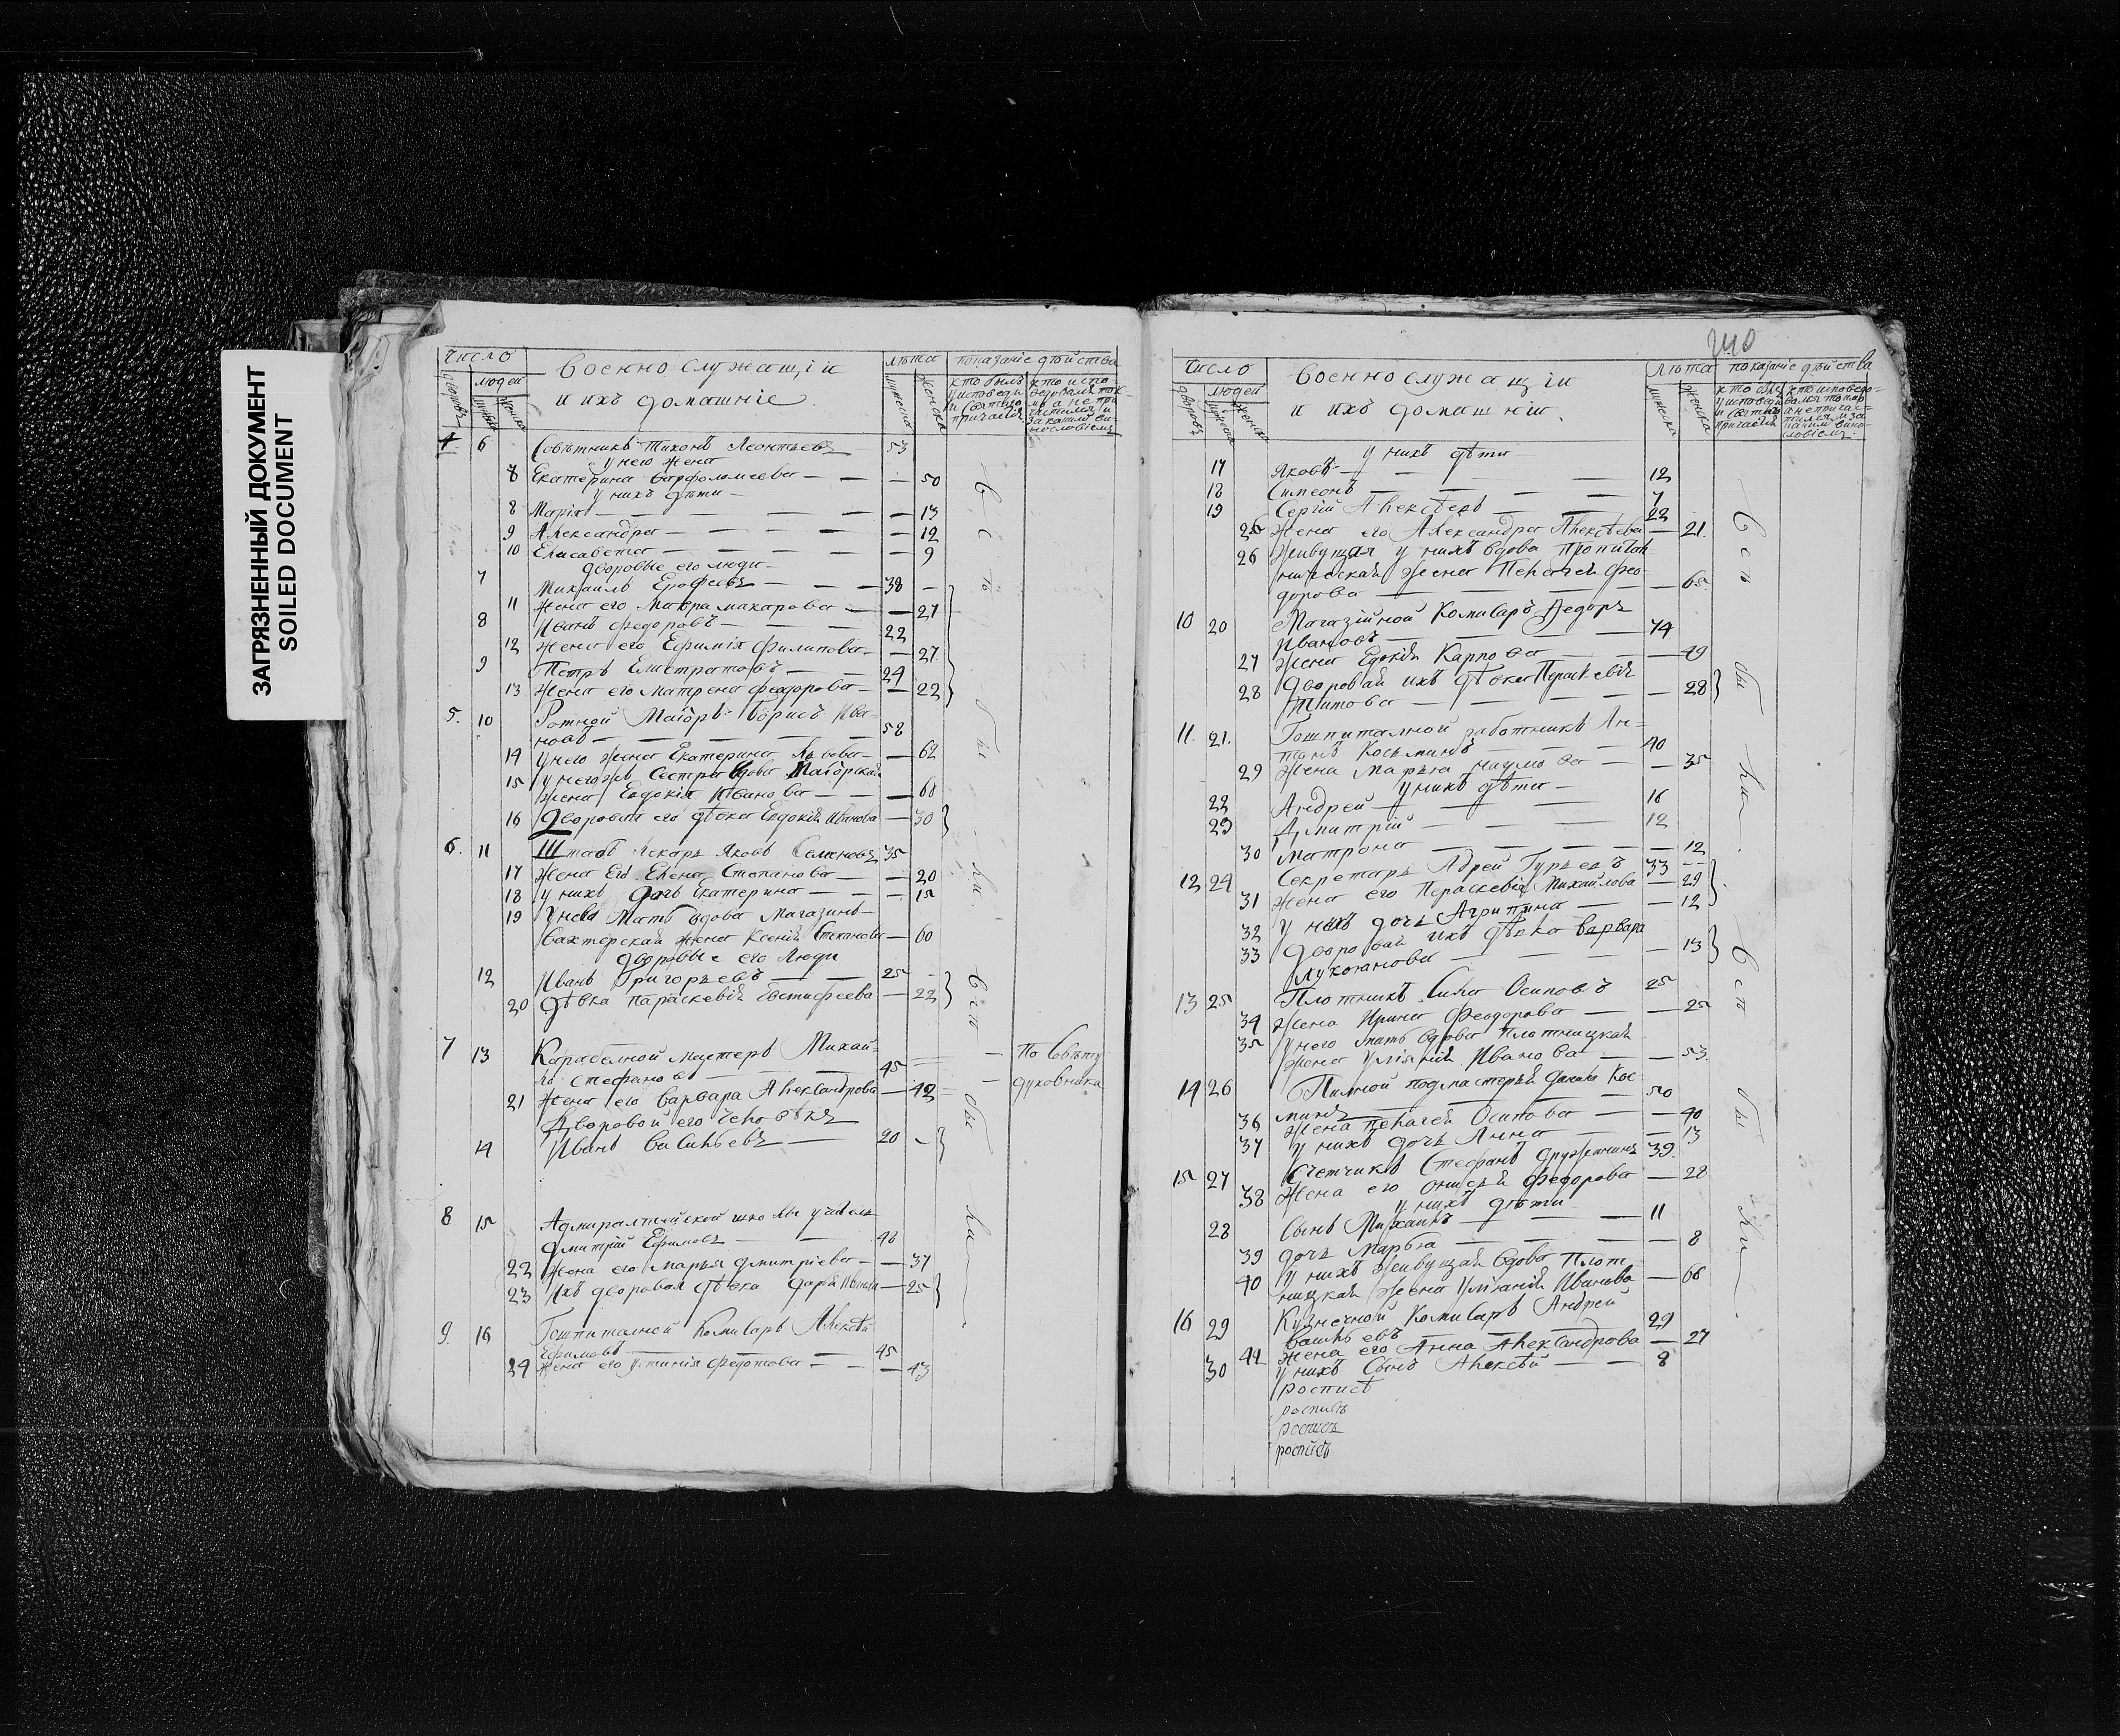 ЗАГРЯЗНЕННЫЙ ДОКУМЕНТ
SOILED DOCUMENT
число
людей
военно служащіи
и ихъ домашніе
лѣта
показаніе дѣйства
4 6 Совѣтникъ Тихонъ Леонтьевъ 53
у него жена
7 Екатерина Варфоломеева — — — 50
у нихъ дѣти —
8 Марія — — — — — 13
9 Александра — — — — 12
10 Елисавета — — — — 9
дворовые его люди —
7 Михаилъ Ерофеевъ — — 38 —
11 Жена его Мавра Макарова — — 27
8 Иванъ Федоровъ — — — 22
12 жена его Ефимія Филипова — — 27
9 Петръ Елистратовъ — — 24
13 Жена его Матрена Феодорова — — 22
5. 10 Ротной Маіоръ Борисъ Ива-
новъ — — — — 58
14 у него жена Екатерина Львова — — 62
15 у негожъ Сестра вдова Маіорская
жена Евдокія Иванова — — — 68
16 Дворовая его дѣвка Евдокія Иванова — 30
6. 11 Штабъ лекарь Яковъ Семеновъ 35
17 Жена Его Елена Степанова — — 20
18 у нихъ дочь Екатерина — — — 15
19 У нево Мать вдова Магазинъ-
вахтерская жена Ксенія Степанова — 60
дворовые его Люди
12 Иванъ Григорьевъ — — 25 —
20 дѣвка Параскевія Евстифеева — 22
7 13 Карабелной мастеръ Михай-
ло Стефановъ — — — 45 — по Совѣту
21 Жена его Варвара Александрова — 42 — духовника
Дворовой его человѣкъ
14 Иванъ Васильевъ — 20 —
8 15 Адмиралтейской школы учитель
Дмитрій Ефимовъ — — 48
22 Жена его Марья Дмитріева — — 37
23 Ихъ дворовая дѣвка Дарья Иванова — 25
9 16 Гошпиталной Комисаръ Алексѣй
Ефимовъ — — — 45
24 Жена его Устинія Федотова — — — 43
всѣ
были
всѣ
были
240
число
людей
военно служащіи
и ихъ домашніи
лѣта
показаніе дѣйства
у нихъ дѣти
17 Яковъ — — — 12
18 Симеонъ — — — — 7
19 Сергій Алексѣевъ — — 22
25 Жена его Александра Алексѣева — 21
26 Живущая у нихъ вдова
жена Пелагея Фео-
дорова — — — — — 65
10 20 Магазійной Комисаръ Федоръ
Ивановъ — — — — 74
27 Жена Евдокія Карпова — — 49
28 Дворовая ихъ дѣвка Параскевія
Титова — — — — 28
11. 21. Гошпиталной работникъ Ан-
тонъ Косьминъ — — — 40
29 Жена Марѳа Наумова — — 35
у нихъ дѣти —
22 Андрей — — — 16
23 Дмитрій — — — 12
30 Матрона — — — — — 12
12 24 Секретарь Адрей Гурьевъ 33 —
31 Жена его Параскевія Михайлова — 29
32 у нихъ дочь Агрипина — — 12
33 Дворовая ихъ дѣвка Варвара
— — — — 13
13 25 Плотникъ Сила Осиповъ 25
34 Жена Ирина Феодорова — — 25
35 У него мать вдова Плотницкая
жена Уліянія Иванова — — 53
14 26 Пилной подмастерья Данила Кос-
минъ — — — — 50
36 Жена Пелагея Осипова — — 40
37 у нихъ дочь Анна — — — 13
15 27 Счетчикъ Стефанъ Дружининъ 39
38 Жена его Онисья Федорова — 28
у нихъ дѣти
28 Сынъ Михаилъ — — — 11
39 дочь Марѳа — — — — 8
40 у нихъ живущая вдова Плот-
ницкая жена Уліянія Иванова — 66
16 29 Кузнечной Комисаръ Андрей
Васильевъ — — — 29
41 Жена его Анна Александрова — 27
30 у нихъ Сынъ Алексѣй — — 8
роспись
роспись
роспись
роспись
всѣ
были
всѣ
были